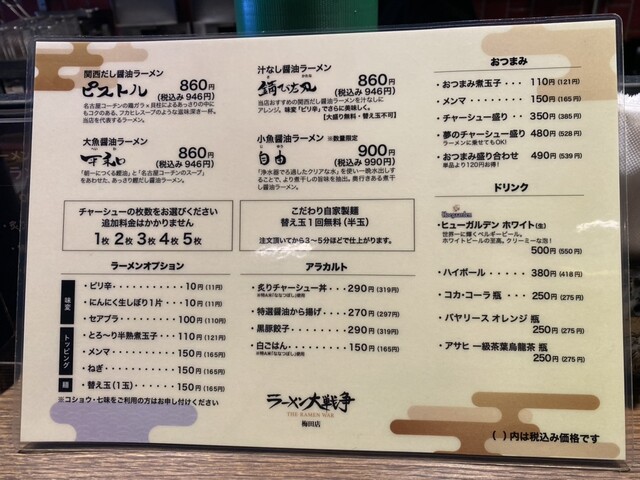 関西だし醤油ラーメン
ピストル
860円
(税込み 946円)
名古屋コーチンの鶏ガラ×貝柱によるあっさりの中に
もコクのある、フカヒレスープのような滋味深き一杯。
当店を代表するラーメン。
汁なし醤油ラーメン
860円
(税込み 946円)
当店おすすめの関西だし醤油ラーメンを汁なしに
アレンジ。味変「ピリ辛」でさらに美味しく。
【大盛り無料・替え玉不可】
大魚醤油ラーメン
860円
(税込み 946円)
「朝一につくる鰹油」と「名古屋コーチンのスープ」
をあわせた、あっさり鰹だし醤油ラーメン。
小魚醤油ラーメン ※数量限定
自由
900円
(税込み 990円)
「浄水器でろ過したクリアな水」を使い一晩水出しす
ることで、より煮干しの旨味を抽出。奥行きある煮干
し醤油ラーメン。
チャーシューの枚数をお選びください
追加料金はかかりません
1枚 2枚 3枚 4枚 5枚
こだわり自家製麺
替え玉1回無料(半玉)
注文頂いてから3~5分ほどで仕上がります。
ラーメンオプション
味変
・ピリ辛 10円(11円)
・にんにく生しぼり1片 10円(11円)
・セアブラ 100円(110円)
トッピング
・とろ~り半熟煮玉子 110円(121円)
・メンマ 150円(165円)
・ねぎ 150円(165円)
麺
・替え玉(1玉) 150円(165円)
※コショウ・七味をご利用の方はお申し付けください
アラカルト
・炙りチャーシュー丼 290円(319円)
※特A米「ななつぼし」使用
・特選醤油から揚げ 270円(297円)
・黒豚餃子 290円(319円)
・白ごはん 150円(165円)
※特A米「ななつぼし」使用
ラーメン大戦争
THE RAMEN WAR
梅田店
おつまみ
・おつまみ煮玉子 110円(121円)
・メンマ 150円(165円)
・チャーシュー盛り 350円(385円)
・夢のチャーシュー盛り 480円(528円)
ラーメンに乗せてもOK!
・おつまみ盛り合わせ 490円(539円)
単品より120円お得!
ドリンク
Hoegaarden
・ヒューガルデン ホワイト(生)
世界一に輝くベルギービール。
ホワイトビールの至高。クリーミーな泡!
500円(550円)
・ハイボール 380円(418円)
・コカ・コーラ 瓶 250円(275円)
・バヤリース オレンジ 瓶
250円(275円)
・アサヒ 一級茶葉烏龍茶 瓶
250円(275円)
( )内は税込み価格です